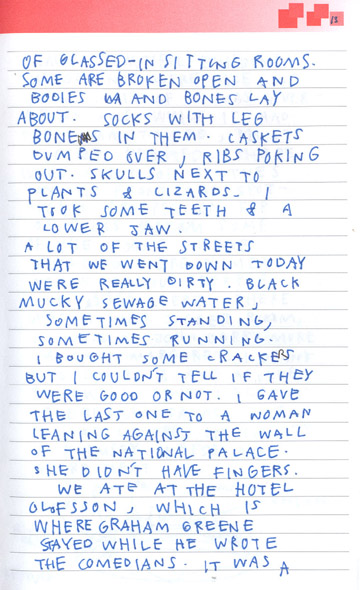 13
OF GLASSED-IN SITTING ROOMS.
SOME ARE BROKEN OPEN AND
BODIES AND BONES LAY
ABOUT. SOCKS WITH LEG
BONES IN THEM. CASKETS
DUMPED OVER, RIBS POKING
OUT. SKULLS NEXT TO
PLANTS & LIZARDS. I
TOOK SOME TEETH & A
LOWER JAW.
A LOT OF THE STREETS
THAT WE WENT DOWN TODAY
WERE REALLY DIRTY. BLACK
MUCKY SEWAGE WATER,
SOMETIMES STANDING,
SOMETIMES RUNNING.
I BOUGHT SOME CRACKERS
BUT I COULDN'T TELL IF THEY
WERE GOOD OR NOT. I GAVE
THE LAST ONE TO A WOMAN
LEANING AGAINST THE WALL
OF THE NATIONAL PALACE.
SHE DIDN'T HAVE FINGERS.
WE ATE AT THE HOTEL
OLOFSSON, WHICH IS
WHERE GRAHAM GREENE
STAYED WHILE HE WROTE
THE COMEDIANS. IT WAS A